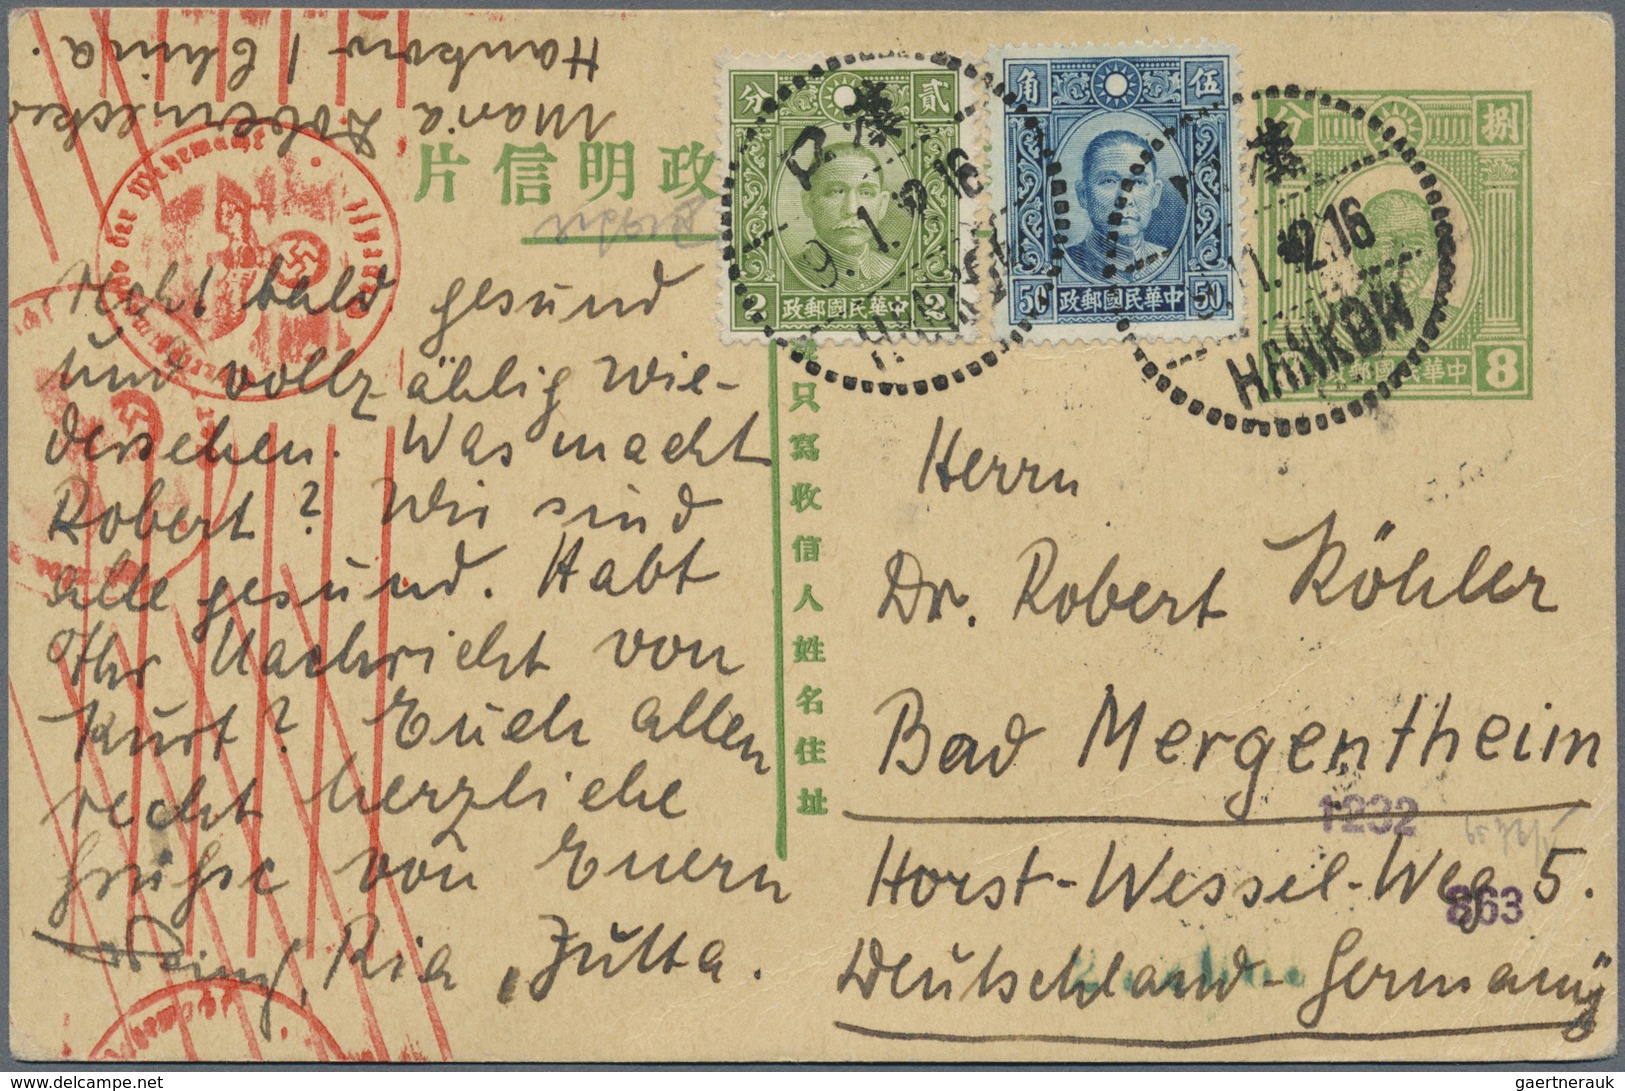 Maria Dobernecker
Hankow / China.
片信明政
分 貳
2 政郵國民華中 2
角 伍
50 政郵國民華中 50
分 捌
政郵國民華中 8
漢口
9.1.42.16
HANKOW
漢
1.42.16
HANKOW
der Wehrmacht
只寫收信人姓名住址
Hofft bald gesund
und vollzählig Wie-
dersehen. Was macht
Robert? Wir sind
alle gesund. Habt
Ihr Nachricht von
Kurt? Euch allen
recht herzliche
Grüße von Euern
Ria, Jutta.
Herrn
Dr. Robert Köhler
Bad Mergentheim
1232
Horst-Wessel-Weg 5.
863
Deutschland-Germany
gaertnerauk